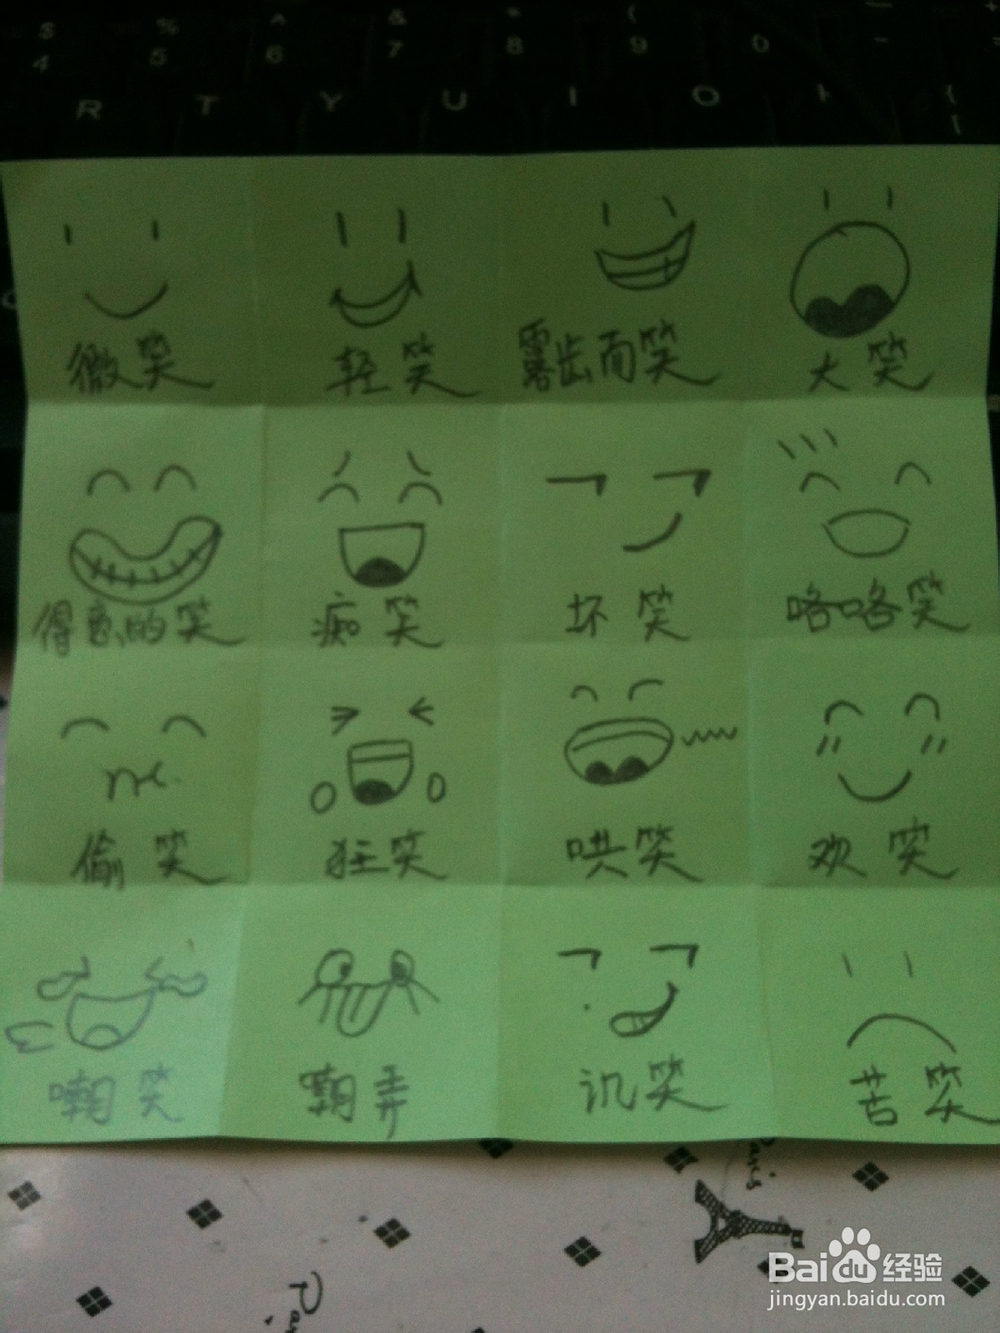 $ % ^ & * (
4 5 6 7 8 9 0
R T Y U I O
微笑 轻笑 露齿而笑 大笑
得意的笑 痴笑 坏笑 咯咯笑
偷笑 狂笑 哄笑 欢笑
嘲笑 嘲弄 讥笑 苦笑
Paris
Baidu经验
jingyan.baidu.com